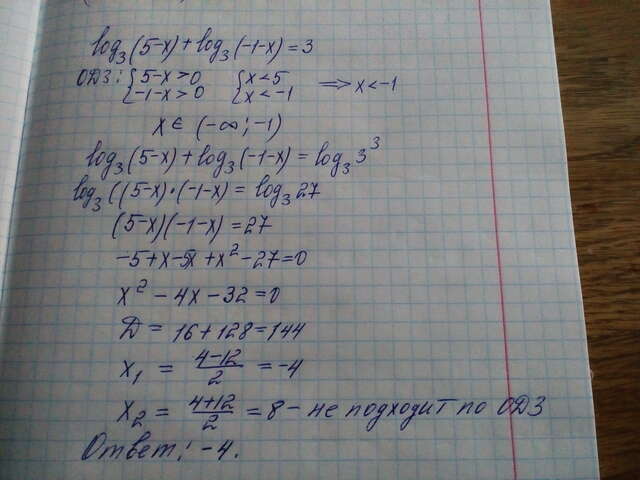 log₃(5-x)+log₃(-1-x)=3
ОДЗ: {5-x>0 {x<5 ⟹ x<-1
{-1-x>0 {x<-1
x∈(-∞;-1)
log₃(5-x)+log₃(-1-x)=log₃3³
log₃((5-x)·(-1-x)=log₃27
(5-x)(-1-x)=27
-5+x-5x+x²-27=0
x²-4x-32=0
D=16+128=144
x₁ = (4-12)/2 = -4
x₂ = (4+12)/2 = 8 - не подходит по ОДЗ
Ответ: -4.